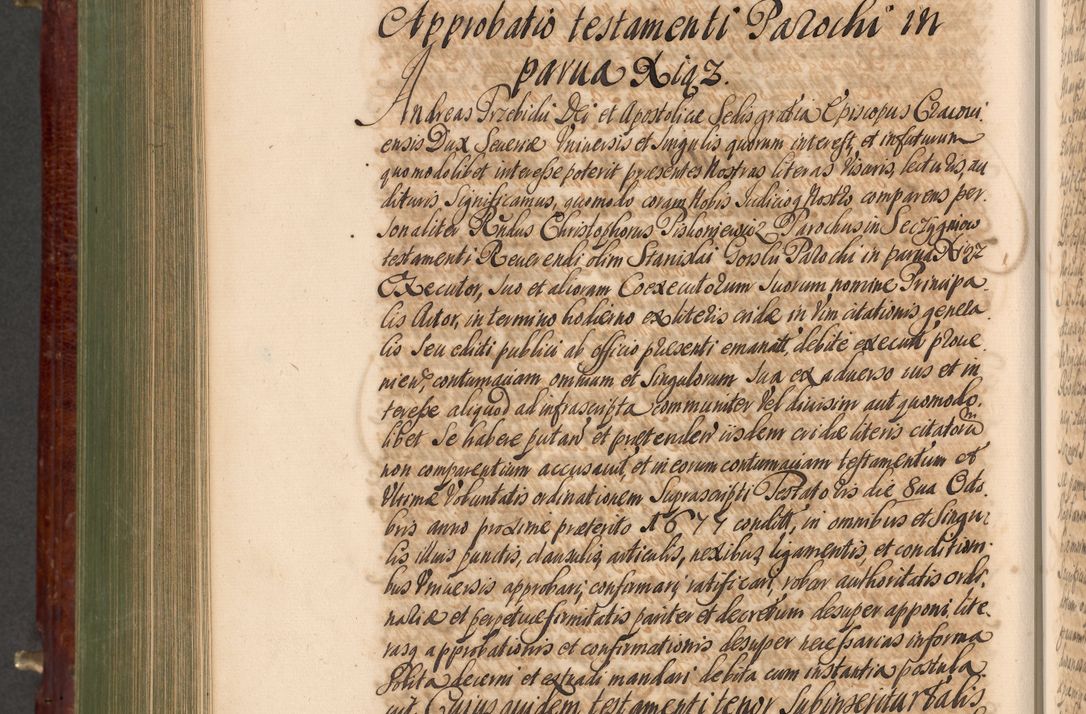 Approbatio testamenti Parochi in
parua Xiąz.
Andreas Trzebicki Dei et Apostolicæ Sedis gratia Episcopus Cracoui
ensis Dux Seueriæ Vniuersis et Singulis quorum interest, et in futurum
quomodolibet interesse poterit præsentes Nostras literas Visuris, lecturis, au
dituris, Significamus, quomodo coram Nobis Judicioq Nostro comparens per
sonaliter Rndus Christophorus Piskorzewicz Parochus in Seczygniow
testamenti Reuerendi olim Stanislai Gorski Parochi in parua Xiąz
Executor, suo et aliorum Coexecutorum suorum nomine Principa
lis Actor, in termino hodierno ex literis cridæ in Vim citationis genera
lis seu edicti publici ab officio præsenti emanati, debite executi proue
nien, contumaciam omnium et Singulorum sua ex aduerso ius et in
teresse aliquod ad infrascripta communiter Vel diuisim aut quomodo
libet se habere putan et prætenden iisdem cridæ literis citatorum
non comparentium accusauit, et in eorum contumaciam testamentum et
Vltimæ Voluntatis ordinationem Suprascripti Testatoris die 8ua Octo
bris anno proxime præterito 1677 conditi, in omnibus et Singu
lis illius punctis, clausulis, articulis, nexibus, ligamentis, et condition
bus Vniuersis approbari, confirmari, ratificari, robur authoritatis ordi
nariæ et perpetuæ firmitatis pariter et decretum desuper apponi, lite
rasq approbationis et confirmationis desuper necessarias in forma
Solita decerni et extradi mandari debita cum instantia postula
uit. Cuius quidem testamenti tenor Subinseritur talis